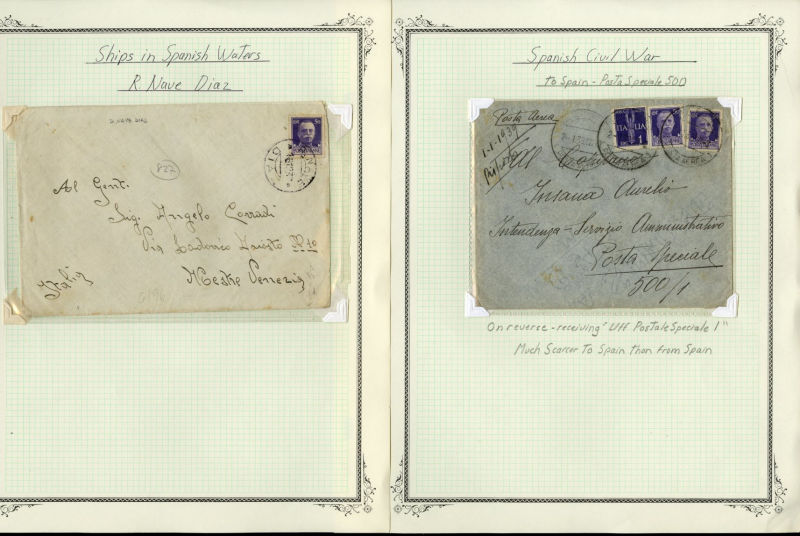 Ships in Spanish Waters
R. Nave Diaz
R. NAVE DIAZ
822
Al Gent.
Sig. Angelo Corradi
Via Lodovico Ariosto No 10
Mestre Venezia
Italia
Spanish Civil War
to Spain - Posta Speciale 500
Posta Aerea
1-1-1939
ITALIA
1
Al Capitano
Insana Aurelio
Intendenza - Servizio Amministrativo
Posta Speciale
500/1
On reverse - receiving "Uff Postale Speciale 1"
Much Scarcer To Spain than from Spain